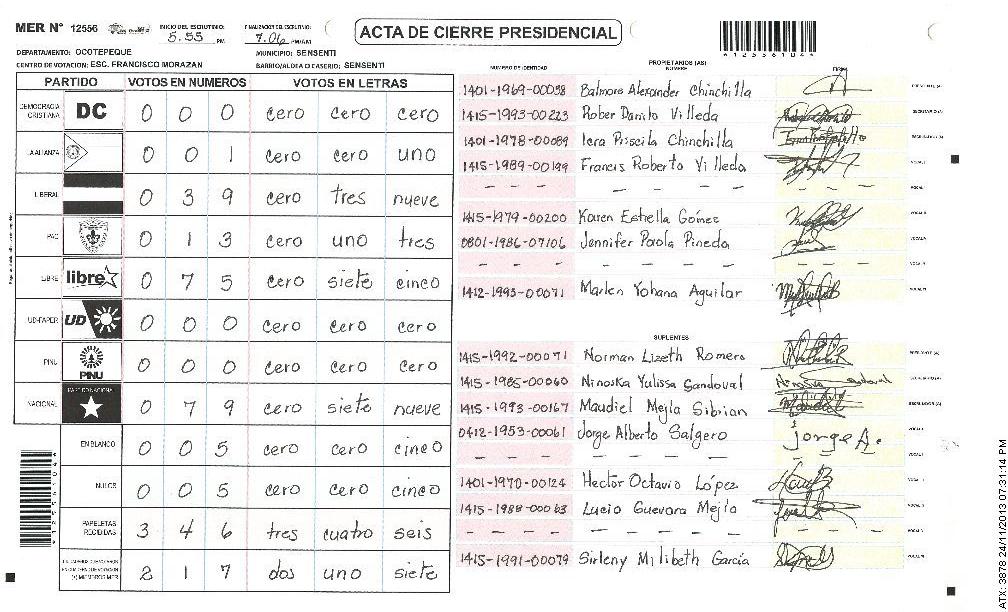 MER N° 12556
INICIO DEL ESCRUTINIO: 5.55 PM
FINALIZACION DEL ESCRUTINIO: 7.06 PM/AM
ACTA DE CIERRE PRESIDENCIAL
9125561044
DEPARTAMENTO: OCOTEPEQUE
MUNICIPIO: SENSENTI
CENTRO DE VOTACION: ESC. FRANCISCO MORAZAN
BARRIO/ALDEA O CASERIO: SENSENTI
PARTIDO VOTOS EN NUMEROS VOTOS EN LETRAS
DEMOCRACIA CRISTIANA DC 0 0 0 cero cero cero
LA ALIANZA 0 0 1 cero cero uno
LIBERAL 0 3 9 cero tres nueve
PAC 0 1 3 cero uno tres
LIBRE libre 0 7 5 cero siete cinco
UD-FAPER UD 0 0 0 cero cero cero
PINU PINU 0 0 0 cero cero cero
NACIONAL PARTIDO NACIONAL 0 7 9 cero siete nueve
EN BLANCO 0 0 5 cero cero cinco
NULOS 0 0 5 cero cero cinco
PAPELETAS RECIBIDAS 3 4 6 tres cuatro seis
2 1 7 dos uno siete
NUMERO DE IDENTIDAD
PROPIETARIOS (AS)
NOMBRE
FIRMA
1401-1969-00098 Balmore Alexander Chinchilla PRESIDENTE (A)
1415-1993-00223 Rober Danilo Villeda SECRETARIO (A)
1401-1978-00089 Iera Priscila Chinchilla ESCRUTADOR (A)
1415-1989-00199 Francis Roberto Villeda VOCAL I
– – – – – – – – – VOCAL II
1415-1979-00200 Karen Estrella Gómez VOCAL III
0801-1986-07106 Jennifer Paola Pineda VOCAL IV
– – – – – – – – –
1412-1993-00071 Marlen Yohana Aguilar
SUPLENTES
1415-1992-00071 Norman Lizeth Romero PRESIDENTE (A)
1415-1985-00060 Ninoska Yulissa Sandoval SECRETARIO (A)
1415-1993-00167 Maudiel Mejia Sibrian ESCRUTADOR (A)
0412-1953-00061 Jorge Alberto Salgero Jorge A. VOCAL I
– – – – – – – – –
1401-1970-00124 Hector Octavio López
1415-1988-00063 Lucio Guevara Mejia
– – – – – – – – –
1415-1991-00079 Sirleny Milibeth García
9125561044
ATX: 3878 24/11/2013 07:31:14 PM